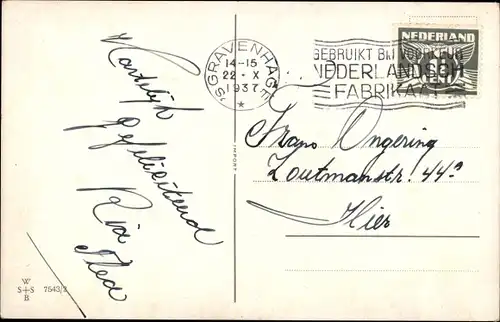 Hartelijk
gefeliciteerd
Ria
'S GRAVENHAGE
14-15
22 · X
1937
*
GEBRUIKT BIJ VOORKEUR
NEDERLANDSCH
FABRIKAAT
NEDERLAND
IMPORT
Ongering
Zoutmanstr. 44ª
Hier
W
S+S 7543/2
B